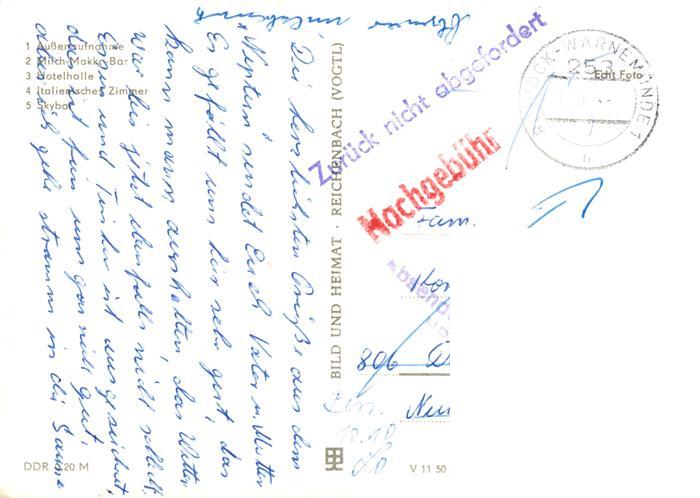 1 Außenaufnahme
2 Milch-Mokka-Bar
3 Hotelhalle
4 Italienisches Zimmer
5 Skybar
Die herzlichsten Grüße aus dem
"Neptun" sendet Euch Vater u. Mutter
Es gefällt uns hier sehr gut, das
kann man aushalten, das Wetter
war bis jetzt ebenfalls nicht schlecht.
Essen und Trinken ist ausgezeichnet,
das ist für uns gar nicht gut,
aber ich gehe stramm in die Sauna
DDR 0,20 M
BILD UND HEIMAT · REICHENBACH (VOGTL)
V 11 50
Zurück nicht abgefordert
Nachgebühr
ROSTOCK-WARNEMÜNDE 1
253
Echt Foto
Fam.
806 D
Neu
10.10